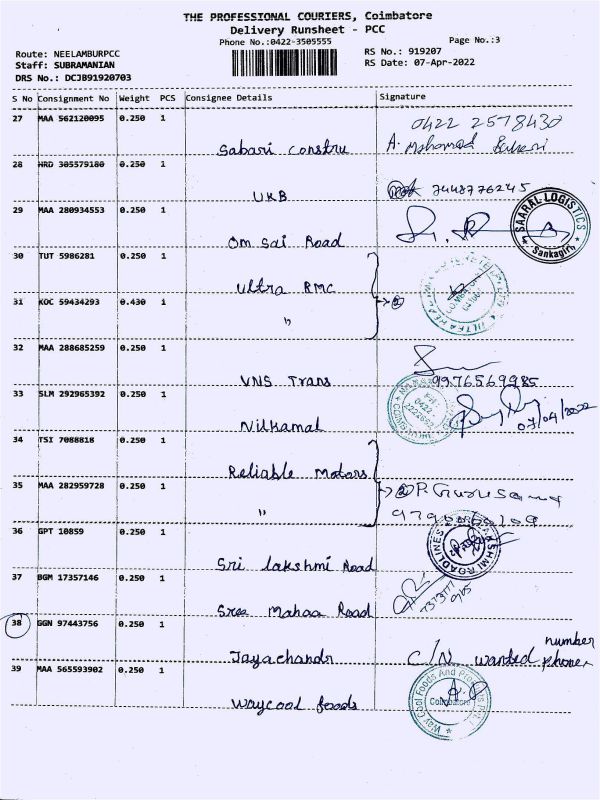 THE PROFESSIONAL COURIERS, Coimbatore
Delivery Runsheet - PCC
Phone No.:0422-3505555
Page No.:3
Route: NEELAMBURPCC
RS No.: 919207
Staff: SUBRAMANIAN
RS Date: 07-Apr-2022
DRS No.: DCJB91920703
S No Consignment No Weight PCS Consignee Details Signature
27 MAA 562120095 0.250 1
Sabari Constru
0422 2578430
A. Mohamed
28 HRD 305579180 0.250 1
UKB
7448776245
29 MAA 280934553 0.250 1
Om Sai Road
SAARAL LOGISTICS
Sankagiri
30 TUT 5986281 0.250 1
Ultra RMC
31 KOC 59434293 0.430 1
"
2
32 MAA 288685259 0.250 1
VNS Trans
9976569985
33 SLM 292965392 0.250 1
Nilkamal
PH:
0422
07/04/2022
34 TSI 7088818 0.250 1
Reliable Motors
35 MAA 282959728 0.250 1
"
2 P. Gurusama
36 GPT 10859 0.250 1
Sri Lakshmi Road
LAKSHMI ROADLINES
37 BGM 17357146 0.250 1
Sree Mahaa Road
38 GGN 97443756 0.250 1
Jayachandr
C/N wanted phone number
39 MAA 565593902 0.250 1
Waycool foods
Way Cool Foods And Products Pvt. Ltd
Coimbatore